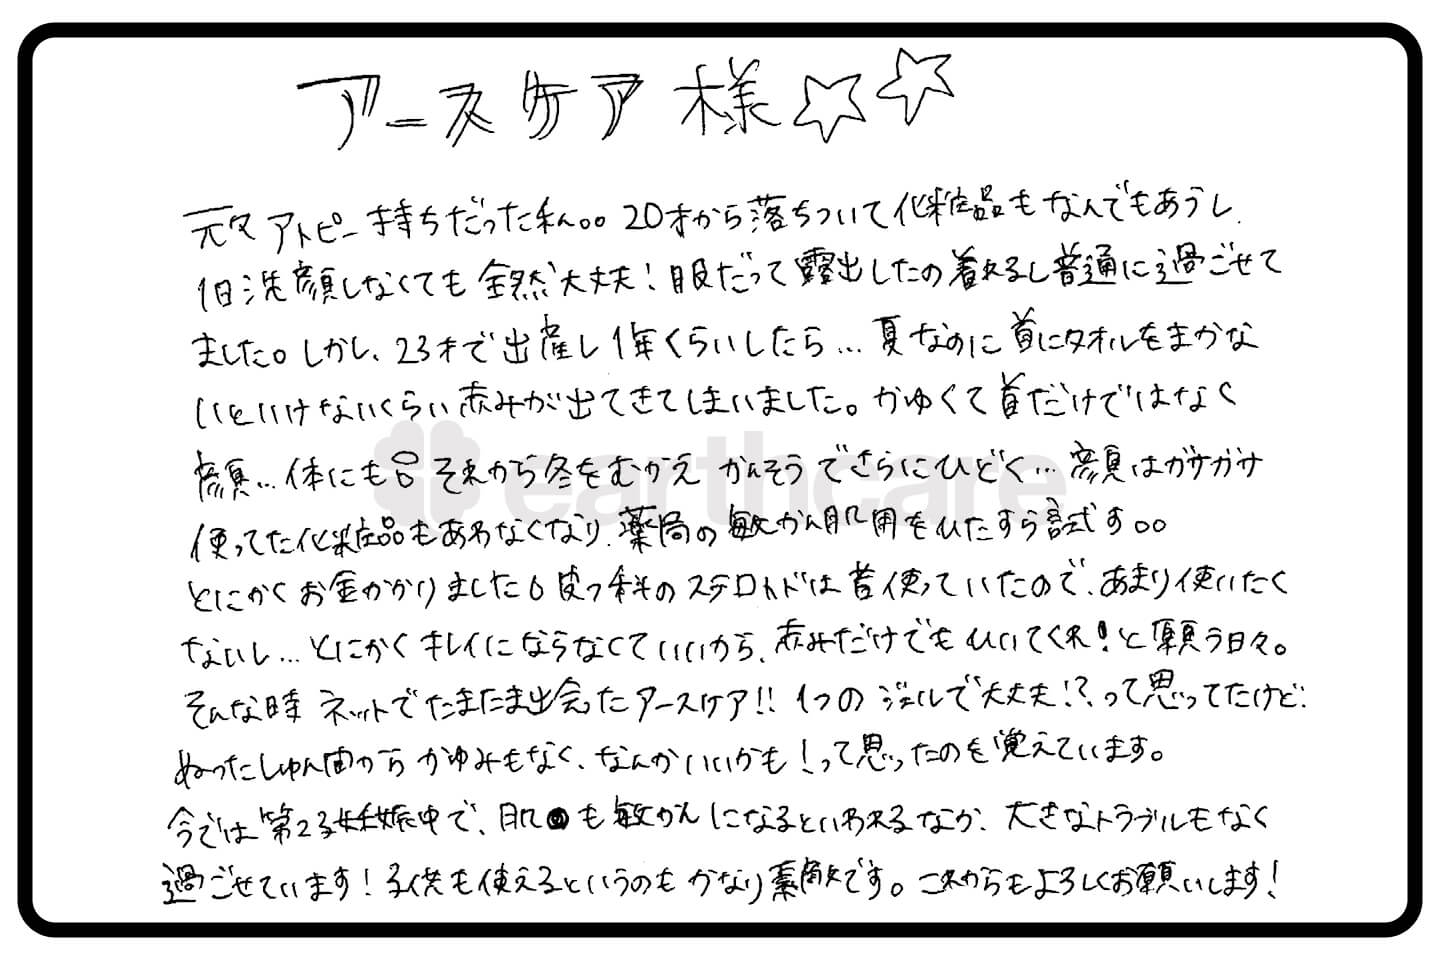 アースケア様☆☆
元々アトピー持ちだった私。。20才から落ちついて化粧品もなんでもあうし、
1日洗顔しなくても全然大丈夫!服だって露出したの着れるし普通に過ごせて
ました。しかし、23才で出産し1年くらいしたら…夏なのに首にタオルをまかな
いといけないくらい赤みが出てきてしまいました。かゆくて首だけではなく
顔…体にも。それから冬をむかえかんそうでさらにひどく…顔はガサガサ
使ってた化粧品もあわなくなり、薬局の敏かん肌用をひたすら試す。。
とにかくお金かかりました。皮フ科のステロイドは昔使っていたので、あまり使いたく
ないし…とにかくキレイにならなくていいから、赤みだけでもひいてくれ!と願う日々。
そんな時ネットでたまたま出会ったアースケア!!1つのジェルで大丈夫!?って思ってたけど、
ぬったしゅん間からかゆみもなく、なんかいいかも!って思ったのを覚えています。
今では第2子妊娠中で、肌も敏かんになるといわれるなか、大きなトラブルもなく
過ごせています!子供も使えるというのもかなり素敵です。これからもよろしくお願いします!
earthcare